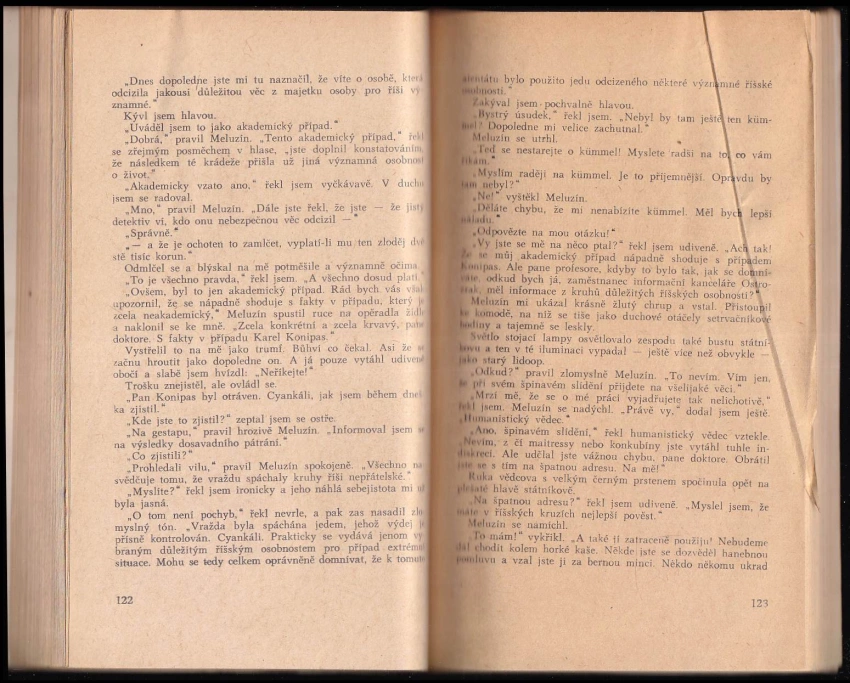 „Dnes dopoledne jste mi tu naznačil, že víte o osobě, která
odcizila jakousi důležitou věc z majetku osoby pro říši vý-
znamné.“
Kývl jsem hlavou.
„Uváděl jsem to jako akademický případ.“
„Dobrá,“ pravil Meluzín. „Tento akademický případ,“ řekl
se zřejmým posměchem v hlase, „jste doplnil konstatováním,
že následkem té krádeže přišla už jiná významná osobnost
o život.“
„Akademicky vzato ano,“ řekl jsem vyčkávavě. V duchu
jsem se radoval.
„Mno,“ pravil Meluzín. „Dále jste řekl, že jste — že jistý
detektiv ví, kdo onu nebezpečnou věc odcizil —“
„Správně.“
„— a že je ochoten to zamlčet, vyplatí-li mu ten zloděj dvě
stě tisíc korun.“
Odmlčel se a blýskal na mě potměšile a významně očima.
„To je všechno pravda,“ řekl jsem. „A všechno dosud platí.“
„Ovšem, byl to jen akademický případ. Rád bych vás však
upozornil, že se nápadně shoduje s fakty v případu, který je
zcela neakademický,“ Meluzín spustil ruce na opěradla židle
a naklonil se ke mně. „Zcela konkrétní a zcela krvavý, pane
doktore. S fakty v případu Karel Konipas.“
Vystřelil to na mě jako trumf. Bůhví co čekal. Asi že se
začnu hroutit jako dopoledne on. A já pouze vytáhl udiveně
obočí a slabě jsem hvízdl: „Neříkejte!“
Trošku znejistěl, ale ovládl se.
„Pan Konipas byl otráven. Cyankáli, jak jsem během dneš-
ka zjistil.“
„Kde jste to zjistil?“ zeptal jsem se ostře.
„Na gestapu,“ pravil hrozivě Meluzín. „Informoval jsem se
na výsledky dosavadního pátrání.“
„Co zjistili?“
„Prohledali vilu,“ pravil Meluzín spokojeně. „Všechno na-
svědčuje tomu, že vraždu spáchaly kruhy říši nepřátelské.“
„Myslíte?“ řekl jsem ironicky a jeho náhlá sebejistota mi už
byla jasná.
„O tom není pochyb,“ řekl nevrle, a pak zas nasadil zlo-
myslný tón. „Vražda byla spáchána jedem, jehož výdej je
přísně kontrolován. Cyankáli. Prakticky se vydává jenom vy-
braným důležitým říšským osobnostem pro případ extrémní
situace. Mohu se tedy celkem oprávněně domnívat, že k tomuto
122
atentátu bylo použito jedu odcizeného některé významné říšské
osobnosti.“
Zakýval jsem pochvalně hlavou.
„Bystrý úsudek,“ řekl jsem. „Nebyl by tam ještě ten küm-
mel? Dopoledne mi velice zachutnal.“
Meluzín se utrhl.
„Teď se nestarejte o kümmel! Myslete radši na to, co vám
říkám.“
„Myslím raději na kümmel. Je to příjemnější. Opravdu by
tam nebyl?“
„Ne!“ vyštěkl Meluzín.
„Děláte chybu, že mi nenabízíte kümmel. Měl bych lepší
náladu.“
„Odpovězte na mou otázku!“
„Vy jste se mě na něco ptal?“ řekl jsem udiveně. „Ach tak!
Že se můj akademický případ nápadně shoduje s případem
Konipas. Ale pane profesore, kdyby to bylo tak, jak se domní-
váte, odkud bych já, zaměstnanec informační kanceláře Ostro-
zrak, měl informace z kruhů důležitých říšských osobností?“
Meluzín mi ukázal krásně žlutý chrup a vstal. Přistoupil
ke komodě, na níž se tiše jako duchové otáčely setrvačníkové
hodiny a tajemně se leskly.
Světlo stojací lampy osvětlovalo zespodu také bustu státní-
kovu a ten v té iluminaci vypadal — ještě více než obvykle —
jako starý lidoop.
„Odkud?“ pravil zlomyslně Meluzín. „To nevím. Vím jen,
že při svém špinavém slídění přijdete na všelijaké věci.“
„Mrzí mě, že se o mé práci vyjadřujete tak nelichotivě,“
řekl jsem. Meluzín se nadýchl. „Právě vy,“ dodal jsem ještě.
„Humanistický vědec.“
„Ano, špinavém slídění,“ řekl humanistický vědec vztekle.
„Nevím, z čí maitressy nebo konkubíny jste vytáhl tuhle in-
diskreci. Ale udělal jste vážnou chybu, pane doktore. Obrátil
jste se s tím na špatnou adresu. Na mě!“
Ruka vědcova s velkým černým prstenem spočinula opět na
plešaté hlavě státníkově.
„Na špatnou adresu?“ řekl jsem udiveně. „Myslel jsem, že
máte v říšských kruzích nejlepší pověst.“
Meluzín se namíchl.
„To mám!“ vykřikl. „A také jí zatraceně použiju! Nebudeme
dál chodit kolem horké kaše. Někde jste se dozvěděl hanebnou
pomluvu a vzal jste ji za bernou minci. Někdo někomu ukrad
123